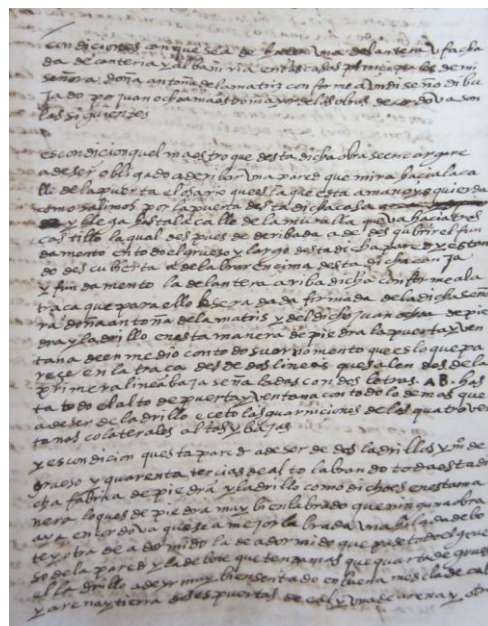 condiciones con que se a de hazer una delantera y facha
da de canteria y albañiria en las casas principales de mi
señora doña antoña de la matris conforme a un diseño dibu
jado por juan ochoa maestro mayor de las obras de cordova son
las siguientes
es condicion quel maestro que desta dicha obra se encargare
a de ser obligado a deribar una pared que mira hacia la ca
lle de la puerta el osario que es la que esta a mano yzquierda
como salimos por la puerta desta dicha casa
y llega hasta la calle de la muralla que va hacia
castillo la qual despues de deribada a de descubrir el fun
damento en todo el grueso y largo desta dicha pared y estan
do descubierta a de labrar encima desta dicha canja
y fundamento la delantera ariba dicha conforme a la
traca que para ello sera dada firmada de la dicha seño
ra doña antoña de la matris y del dicho juan ochoa de pie
dra y ladrillo en esta manera de piedra la puerta y ven
tana de en medio con todo su ornamento que es lo que pa
rece en la traca desde dos lineas que salen dos de la
primera linea baja señaladas con dos letras. AB. has
ta todo el alto de puerta y ventana con todo lo demas que
a de ser de ladrillo eceto las guarniciones de las quatro ven
tanas colaterales altas y bajas
y es condicion questa pared a de ser de dos ladrillos y mº de
grueso y quarenta tercias de alto labrando toda esta di
cha fabrica de piedra y ladrillo como dicho es en esta ma
nera lo ques de piedra muy bien labrado que ninguna obra
aya en cordova que sea mejor labrada una hilada de bo
te y otra de adormido la de adormido que pase todo el grue
so de la pared y la de bote que tenga mas que quarta de grueso
el ladrillo a de yr muy bien sentado con buena mescla de cal
y arena y tierra dos espuertas de cal y una de arena y otra